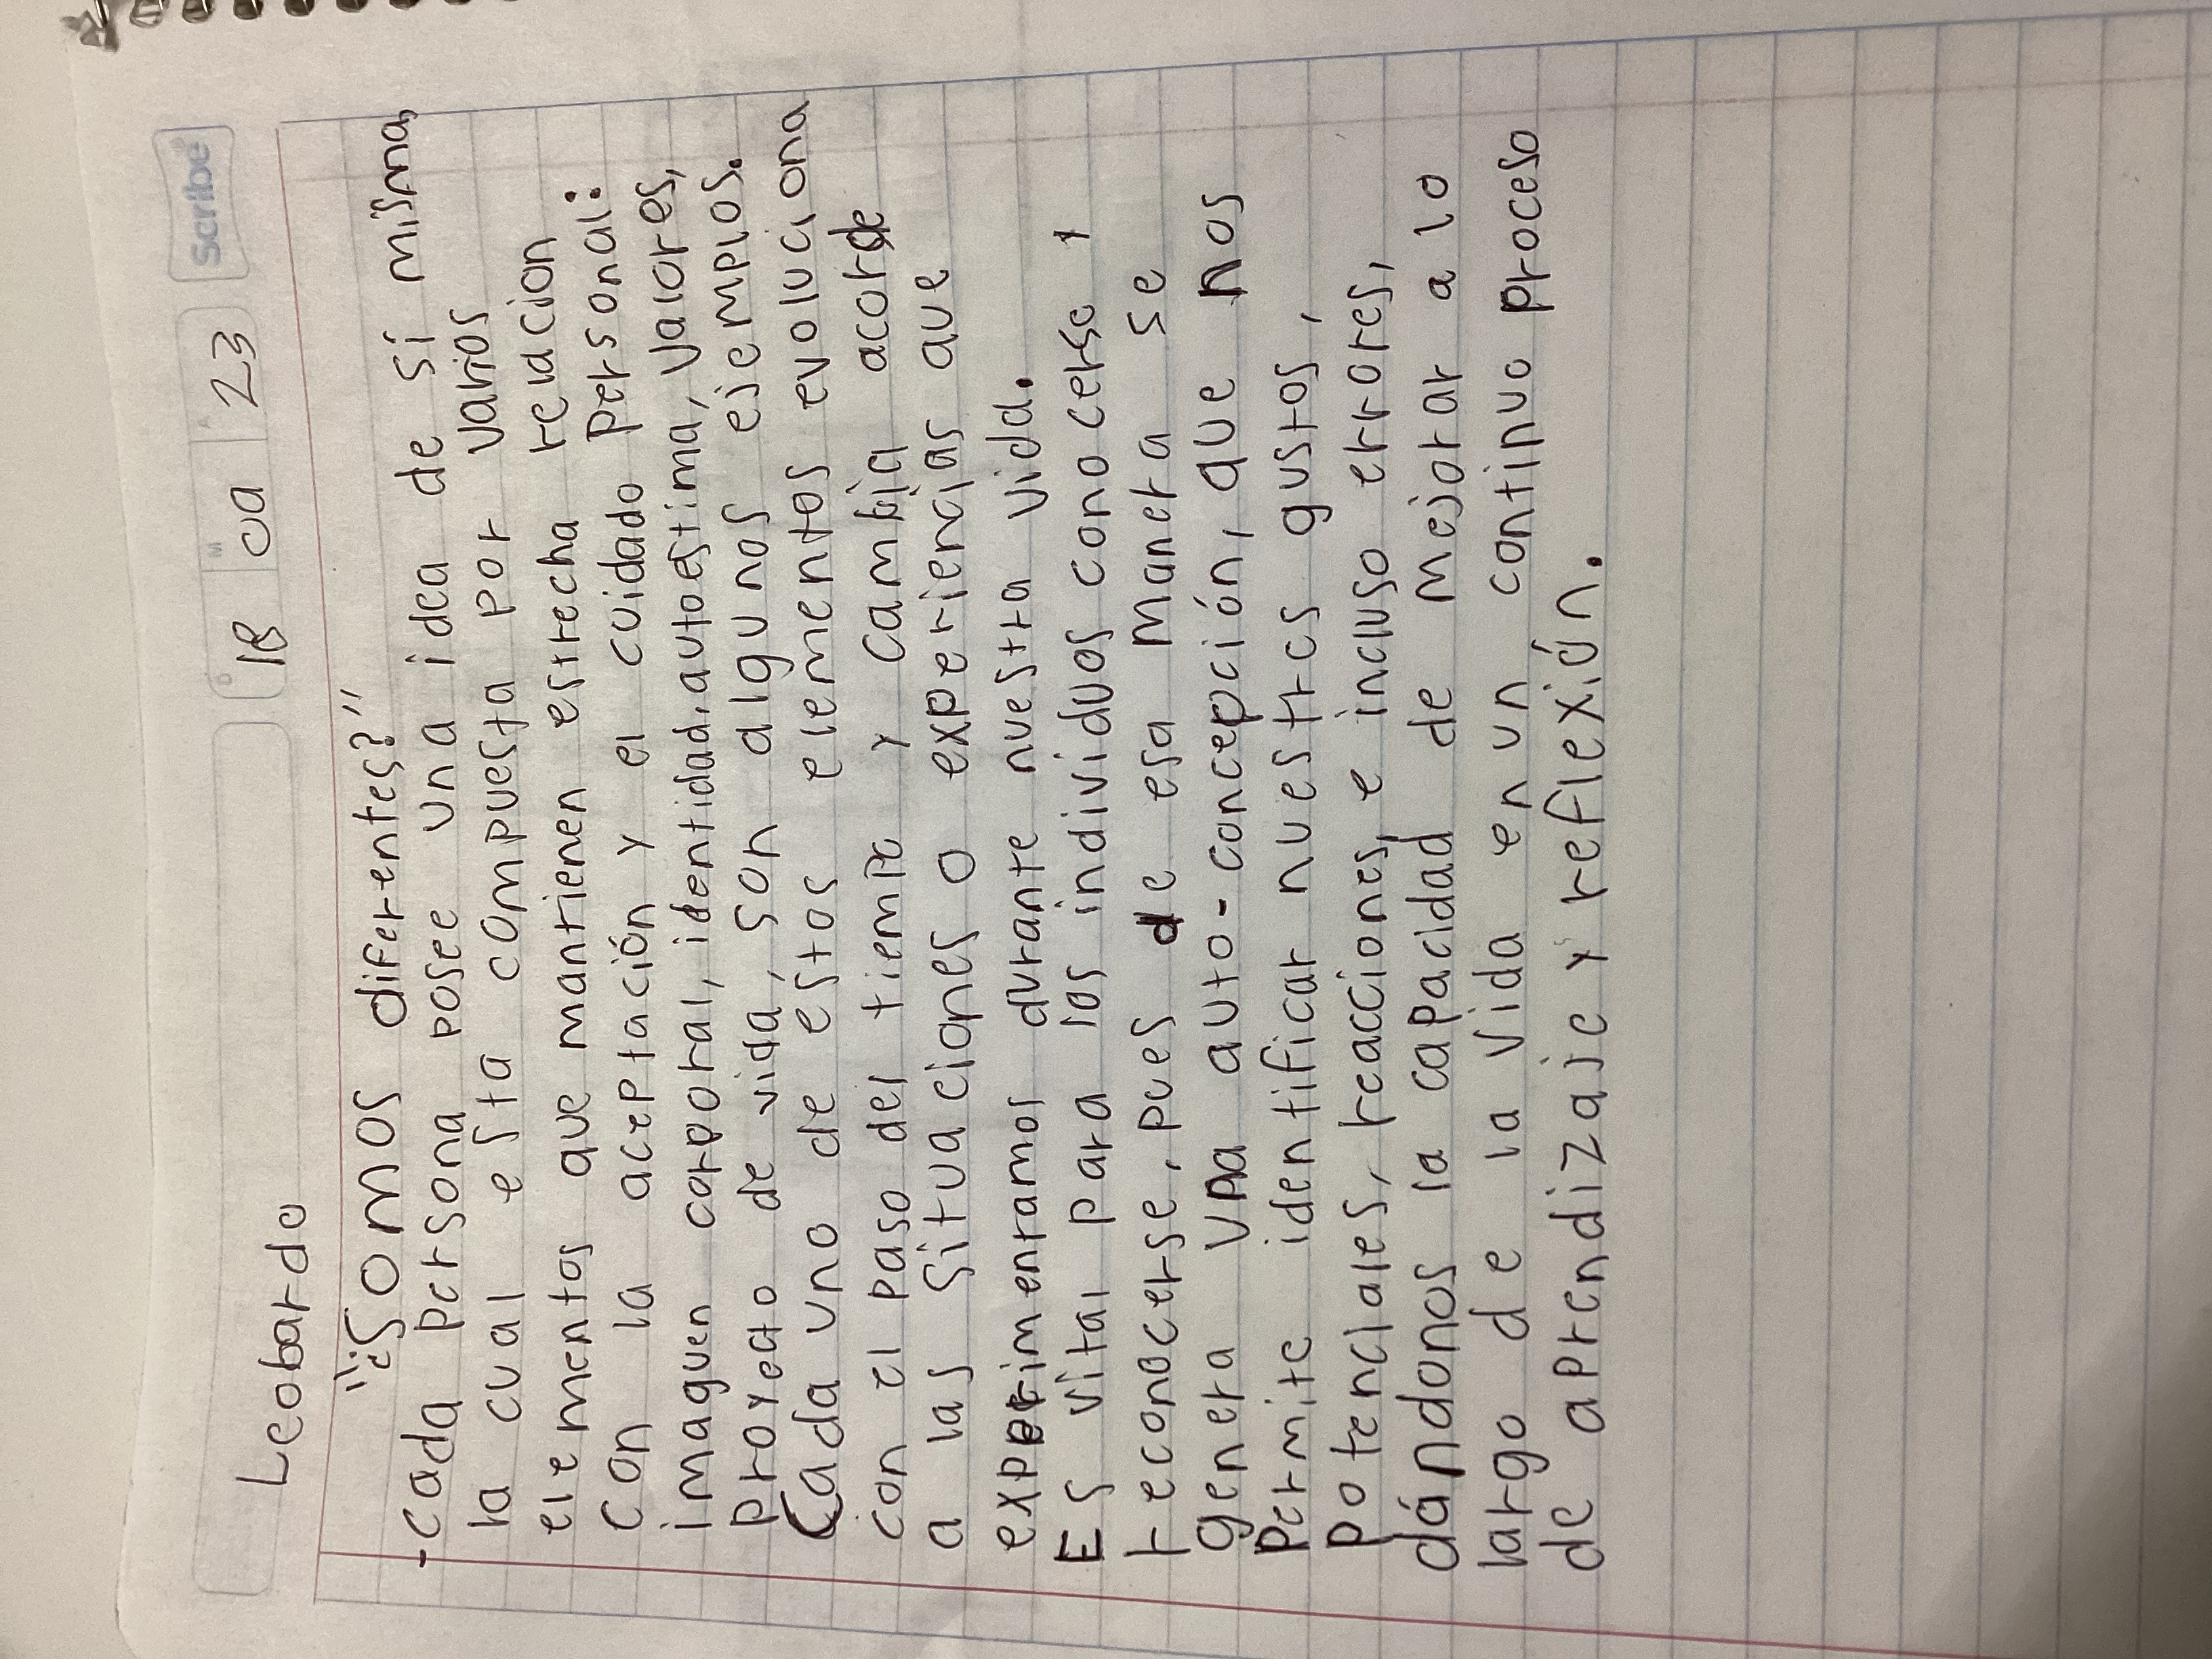 Scribe
D M A
Leobardo 18 09 23
"¿Somos diferentes?"
-cada persona posee una idea de sí misma,
la cual esta compuesta por varios
elementos que mantienen estrecha relacion
con la aceptación y el cuidado personal:
imaguen corporal, identidad, autoestima, valores,
proyecto de vida, son algunos ejemplos.
Cada uno de estos elementos evoluciona
con el paso del tiempo y cambia acorde
a las situaciones o experiencias que
experimentamos durante nuestra vida.
Es vital para los individuos conocerse y
reconocerse, pues de esa manera se
genera una auto-concepción, que nos
permite identificar nuestros gustos,
potenciales, reacciones, e incluso errores,
dándonos la capacidad de mejorar a lo
largo de la vida en un continuo proceso
de aprendizaje y reflexión.